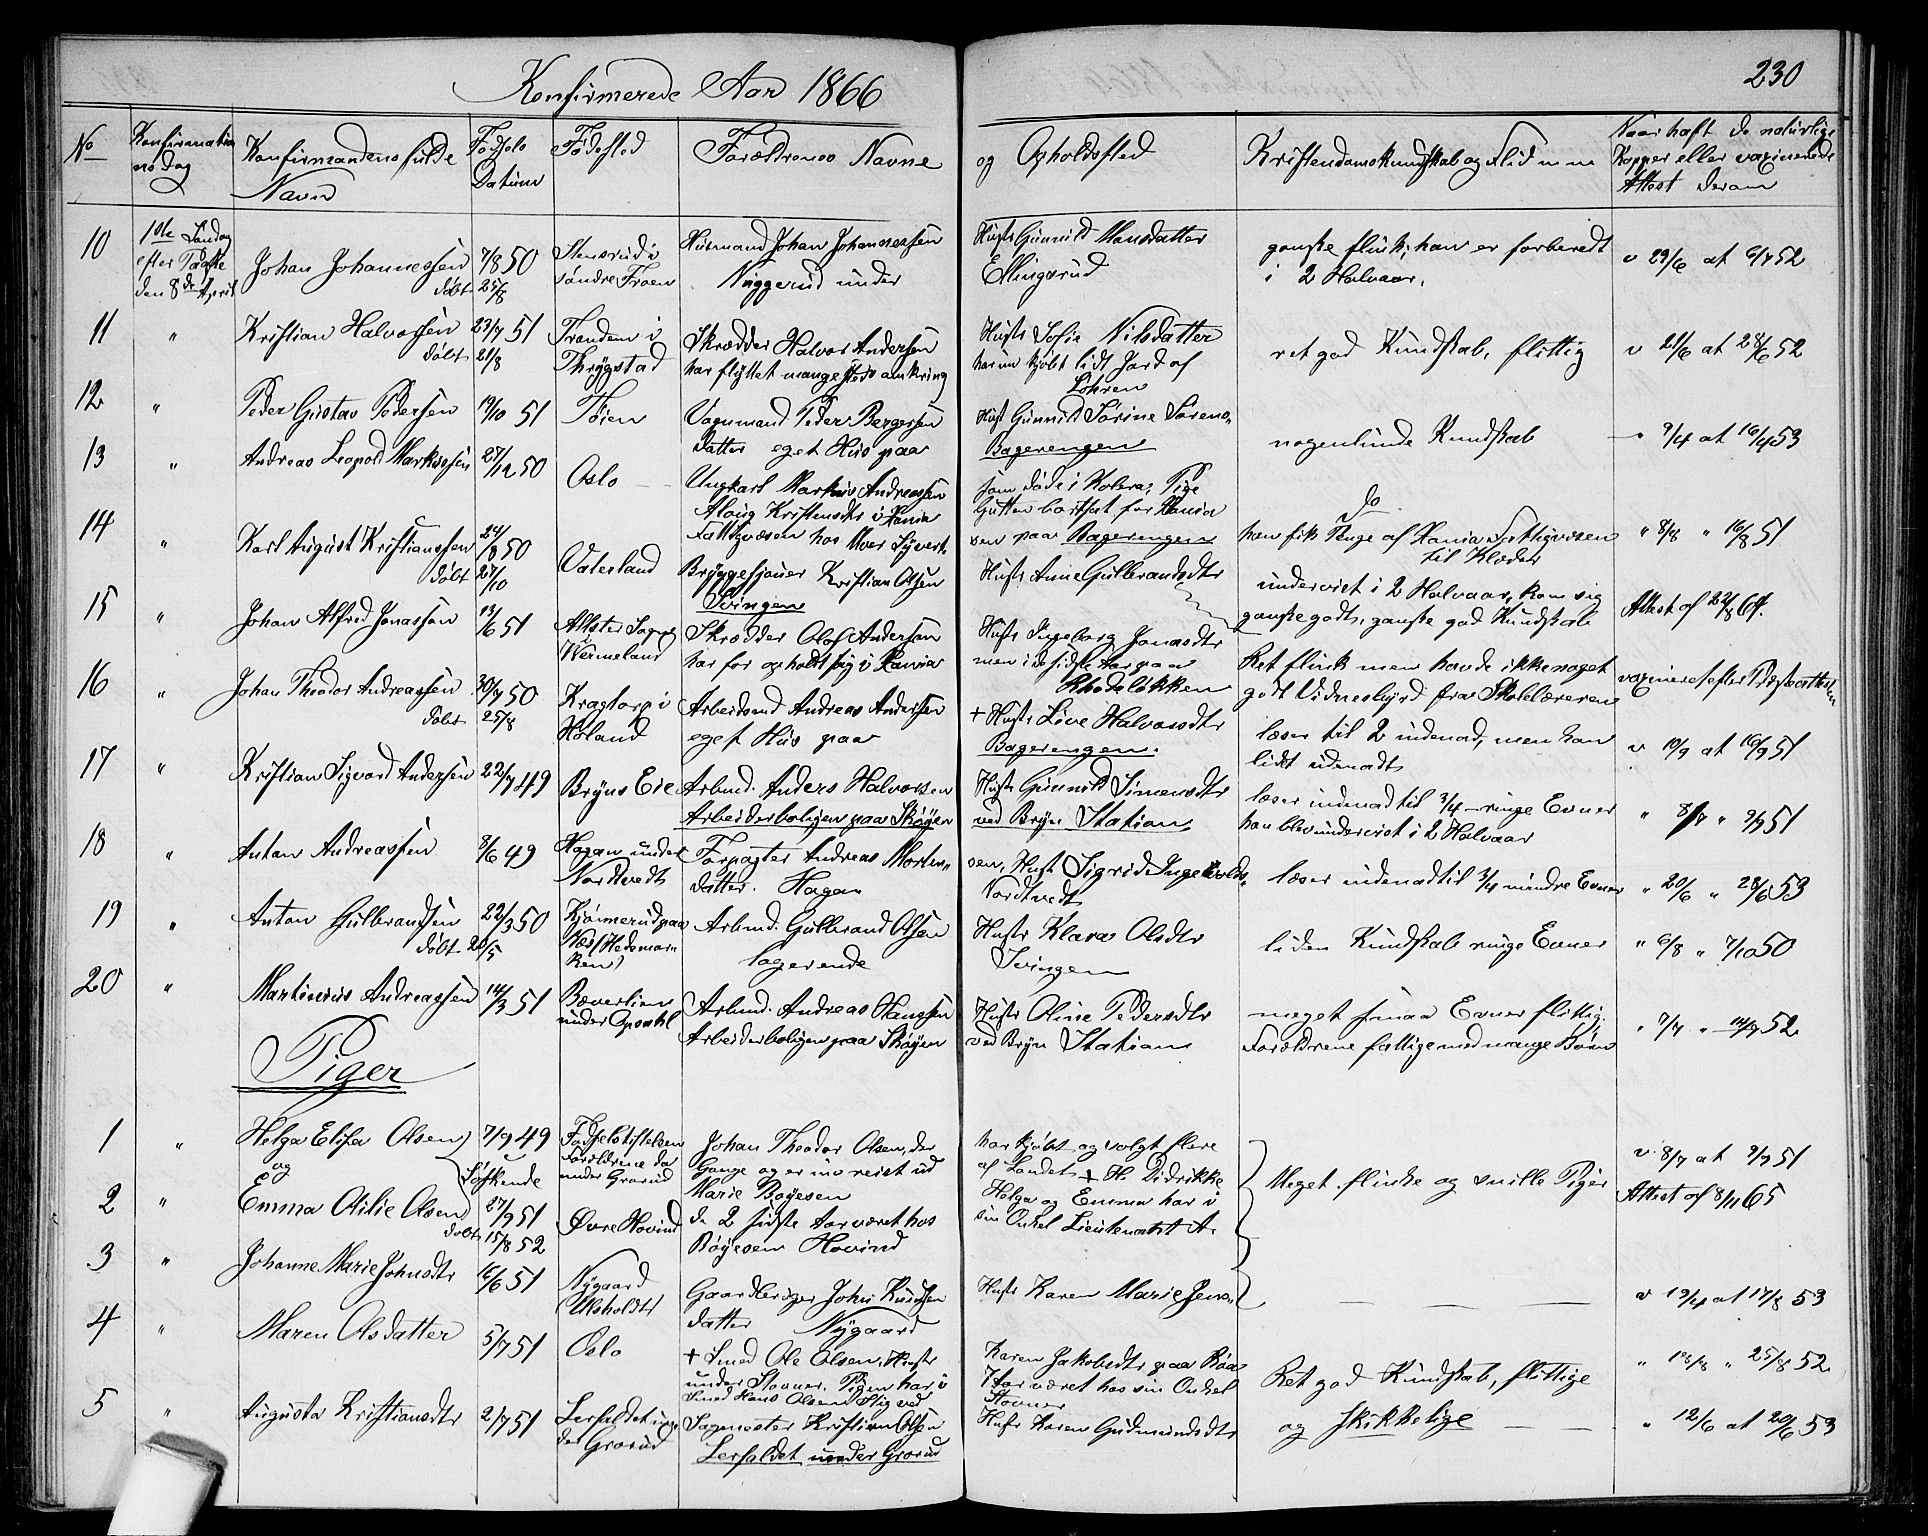 Konfirmerede Aar 1866
230
No
Konfirmatio
nsdag
Konfirmandens fulde
Navn
Fødsels
Datum
Fødested
Forældrenes Navne
og Opholdssted
Kristendomskundskab og Flid m m
Naar haft de naturlige
Kopper eller vaxinerede
Attest derom
10
1ste Søndag
efter Paaske
den 8de April
Johan Johannessen
døbt
7/8 50
25/8
Stensrud i
søndre Froen
Husmand Johan Johannessen
Niggerud under
Hustr Gunnild Monsdatter
Ellingsrud
ganske flink, han er forberedt
i 2 Halvaar.
v 29/6 at 6/7 52
11
"
Kristian Halvorssen
døbt
23/7 51
21/8
Tranden i
Thrygstad
Skrædder Halvor Andersen
har flyttet mange Steds omkring
Hustr Sofie Nilsdatter
har nu kjøbt lidt Jord af
Lohren
ret god Kundskab, flittig
v 21/6 at 28/6 52
12
"
Peder Gustav Pedersen
19/10 51
Tøien
Vognmand Peder Bergersen
datter eget Hus paa
Hust Gunnild Sørine Sørens-
Bagerengen
nogenlunde Kundskab
9/4 at 16/4 53
13
"
Andreas Leopold Markussen
27/12 50
Oslo
Ungkarl Markus Andreassen
Aloug Kristensdtr i Xania
Fattigvæsen hos Iver Syvert-
som døde i Kolera, Pige
Gutten bortsat for Xania
sen paa Bagerengen
do
han fik Penge af Xania Fattigvæsen
til Klæder
" 8/8 " 16/8 51
14
"
Karl August Kristianssen
døbt
24/8 50
27/10
Vaterland
Bryggesjouer Kristian Olsen
Svingen
Hustr Anne Gulbrandsdtr
undervist i 2 Halvaar, kom sig
ganske godt, ganske god Kundskab
Attest af 22/8 64.
15
"
Johan Alfred Jonassen
13/6 51
Alster Sogn
Wermeland
Skrædder Olof Andersen
har før opholdt sig i Xania
Hustr Ingeborg Jonasdtr
men i de sidste Aar paa
Rhodeløkken
Ret flink men havde ikke noget
godt Vidnesbyrd fra Skolelæreren
vaxineret efter Præsteattesten
16
"
Johan Theodor Andreassen
døbt
30/7 50
25/8
Kragtorp i
Høland
Arbeidsmd Andreas Andersen
eget Hus paa
+ Hustr Live Halvorsdtr
Bagerengen.
læser til 2 indenad, men kan
lidt udenadt
v 10/9 at 16/9 51
17
"
Kristian Sigvard Andersen
22/7 49
Bryns Eie
Arbmd. Anders Halvorsen
Arbeiderboligen paa Skøyen
Hustr Gunnild Simensdtr
ved Bryn Station
læser indenad til 3/4 - ringe Evner
han blev undervist i 2 Halvaar
" 8/7 " 9/7 51
18
"
Anton Andreassen
8/6 49
Hagan under
Nordtvedt
Forpagter Andreas Morten-
datter. Hagan
sen, Hust Sigrid Ingebolds-
Nordtvedt
læser indenad til 3/4 mindre Evner
" 20/6 " 28/6 53
19
"
Anton Gulbrandsen
døbt
22/3 50
20/5
Kjømerud paa
Næs (Hedemar
ken)
Arbmd. Gulbrand Olsen
logerende
Hustr Klara Olsdtr
Svingen
liden Kundskab ringe Evner
" 6/8 " 7/10 50
20
"
Martinius Andreassen
14/3 51
Bæverlien
under Opsahl
Arbmd. Andreas Hanssen
Arbeiderboligen paa Skøyen
Hustr Oline Pedersdtr
ved Bryn Station
meget smaa Evner flittig.
Forældrene fattige med mange Børn
" 7/7 " 14/7 52
Piger
1
"
Helga Elisa Olsen
og
7/9 49
Søskende
Fødselsstiftelsen
Forældrene da
under Grorud
Johan Theodor Olsen, der
Gange og er nu reist ud
har kjøbt og solgt flere
af Landet + H. Didrikke
Meget flinke og snille Piger
v. 8/7 at 9/7 51
2
"
Emma Otilie Olsen
døbt
27/9 51
15/8 52
Øvre Hovind
Marie Boyesen
de 2 sidste Aar været hos
Boyesen Hovind
Helga og Emma har i
sin Onkel Lieutenant A.
Attest af 8/11 65
3
"
Johanne Marie Johnsdtr
16/6 51
Nygaard
(Ulsholdt)
Gaardbruger John Knudsen
datter Nygaard
Hustr Karen Marie Jens-
v 19/4 at 17/8 53
4
"
Maren Olsdatter
5/7 51
Oslo
+ Smed Ole Olsen, Hustr
under Stovner. Pigen har i
Smed Hans Olsen Stig ved
Karen Jakobsdtr paa Røas
7 Aar været hos sin Onkel
Stovner
Ret god Kundskab, flittige
" 18/8 " 25/8 52
5
"
Augusta Kristiansdtr
2/7 51
Lerfaldet un-
der Grorud
Sagmester Kristian Olsen
Lerfaldet under Grorud
Hustr Karen Gudmundsdtr
og skikkelige
" 12/6 at 20/6 53